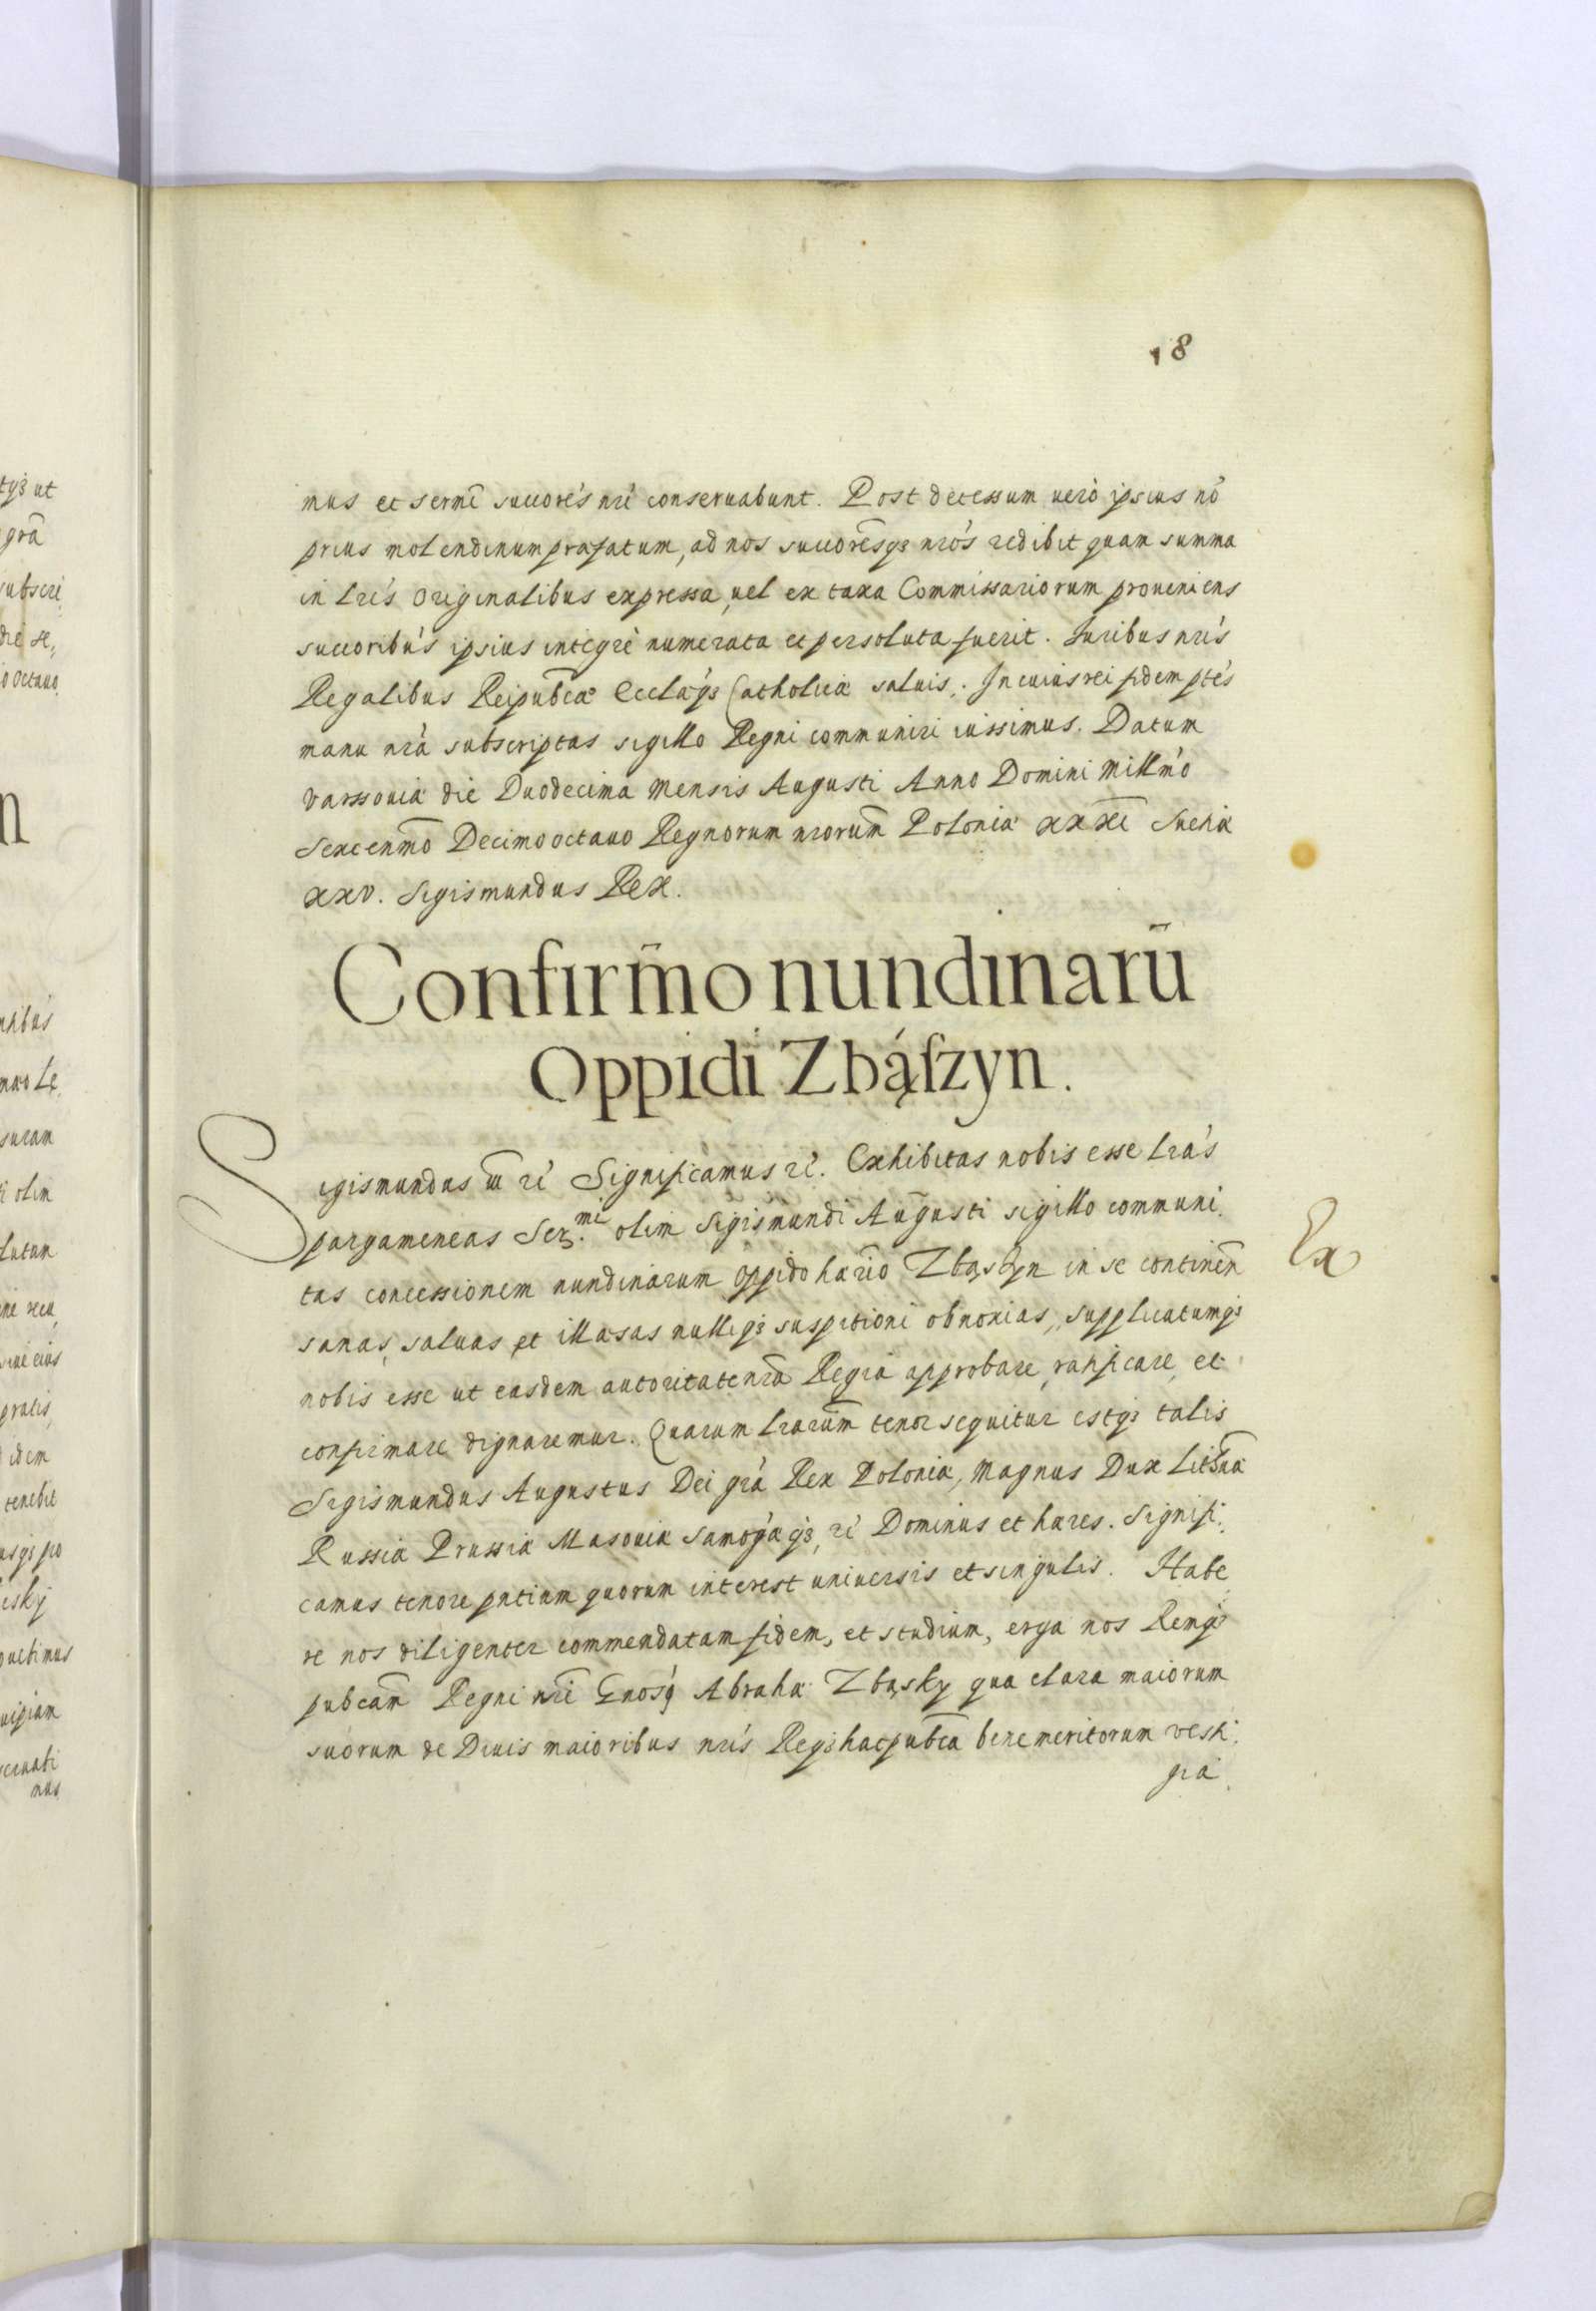 18
mus et sermi succores nri conseruabunt. Post decessum uero ipsius nō
prius molendinum præfatum, ad nos succoresqꝫ nros redibit quam summa
in lris originalibus expressa, uel ex taxa Commissariorum proueniens
succoribus ipsius integre numerata et persoluta fuerit. Iuribus nris
Regalibus Reipubcæ Ecclæqꝫ Catholicæ saluis. In cuius rei fidem ptes
manu nra subscriptas sigillo Regni communiri iussimus. Datum
varssouiæ die Duodecima Mensis Augusti Anno Domini Millmo
Sexcenmo Decimo octauo Regnorum nrorum Poloniæ xxxi Sueciæ
xxv. Sigismundus Rex.
Confirm̄o nundinarū
Oppidi Zbąszyn.
Sigismundus iii rc Significamus rc. Exhibitas nobis esse lras
pargameneas Ser.mi olim Sigismundi Augusti sigillo communi
tas concessionem nundinarum oppido hario Zbąszyn in se continen
sanas, saluas et illæsas nulliqꝫ suspitioni obnoxias, supplicatumqꝫ
nobis esse ut easdem autoritate nra Regia approbare, ratificare, et
confirmare dignaremur. Quarum lrarum tenor sequitur estqꝫ talis
Sigismundus Augustus Dei gra Rex Poloniæ, Magnus Dux Lithuæ
Russiæ Prussiæ Masouiæ Samogæqꝫ, rc Dominus et hæres. Signifi
camus tenore pntium quorum interest uniuersis et singulis. Habe
re nos diligenter commendatam fidem, et studium, erga nos Remqꝫ
pubcam Regni nri Gnosi Abrahæ Zbąsky qua clara maiorum
suorum de Diuis maioribus nris Reqꝫ hac pubca bene meritorum vesti
gia